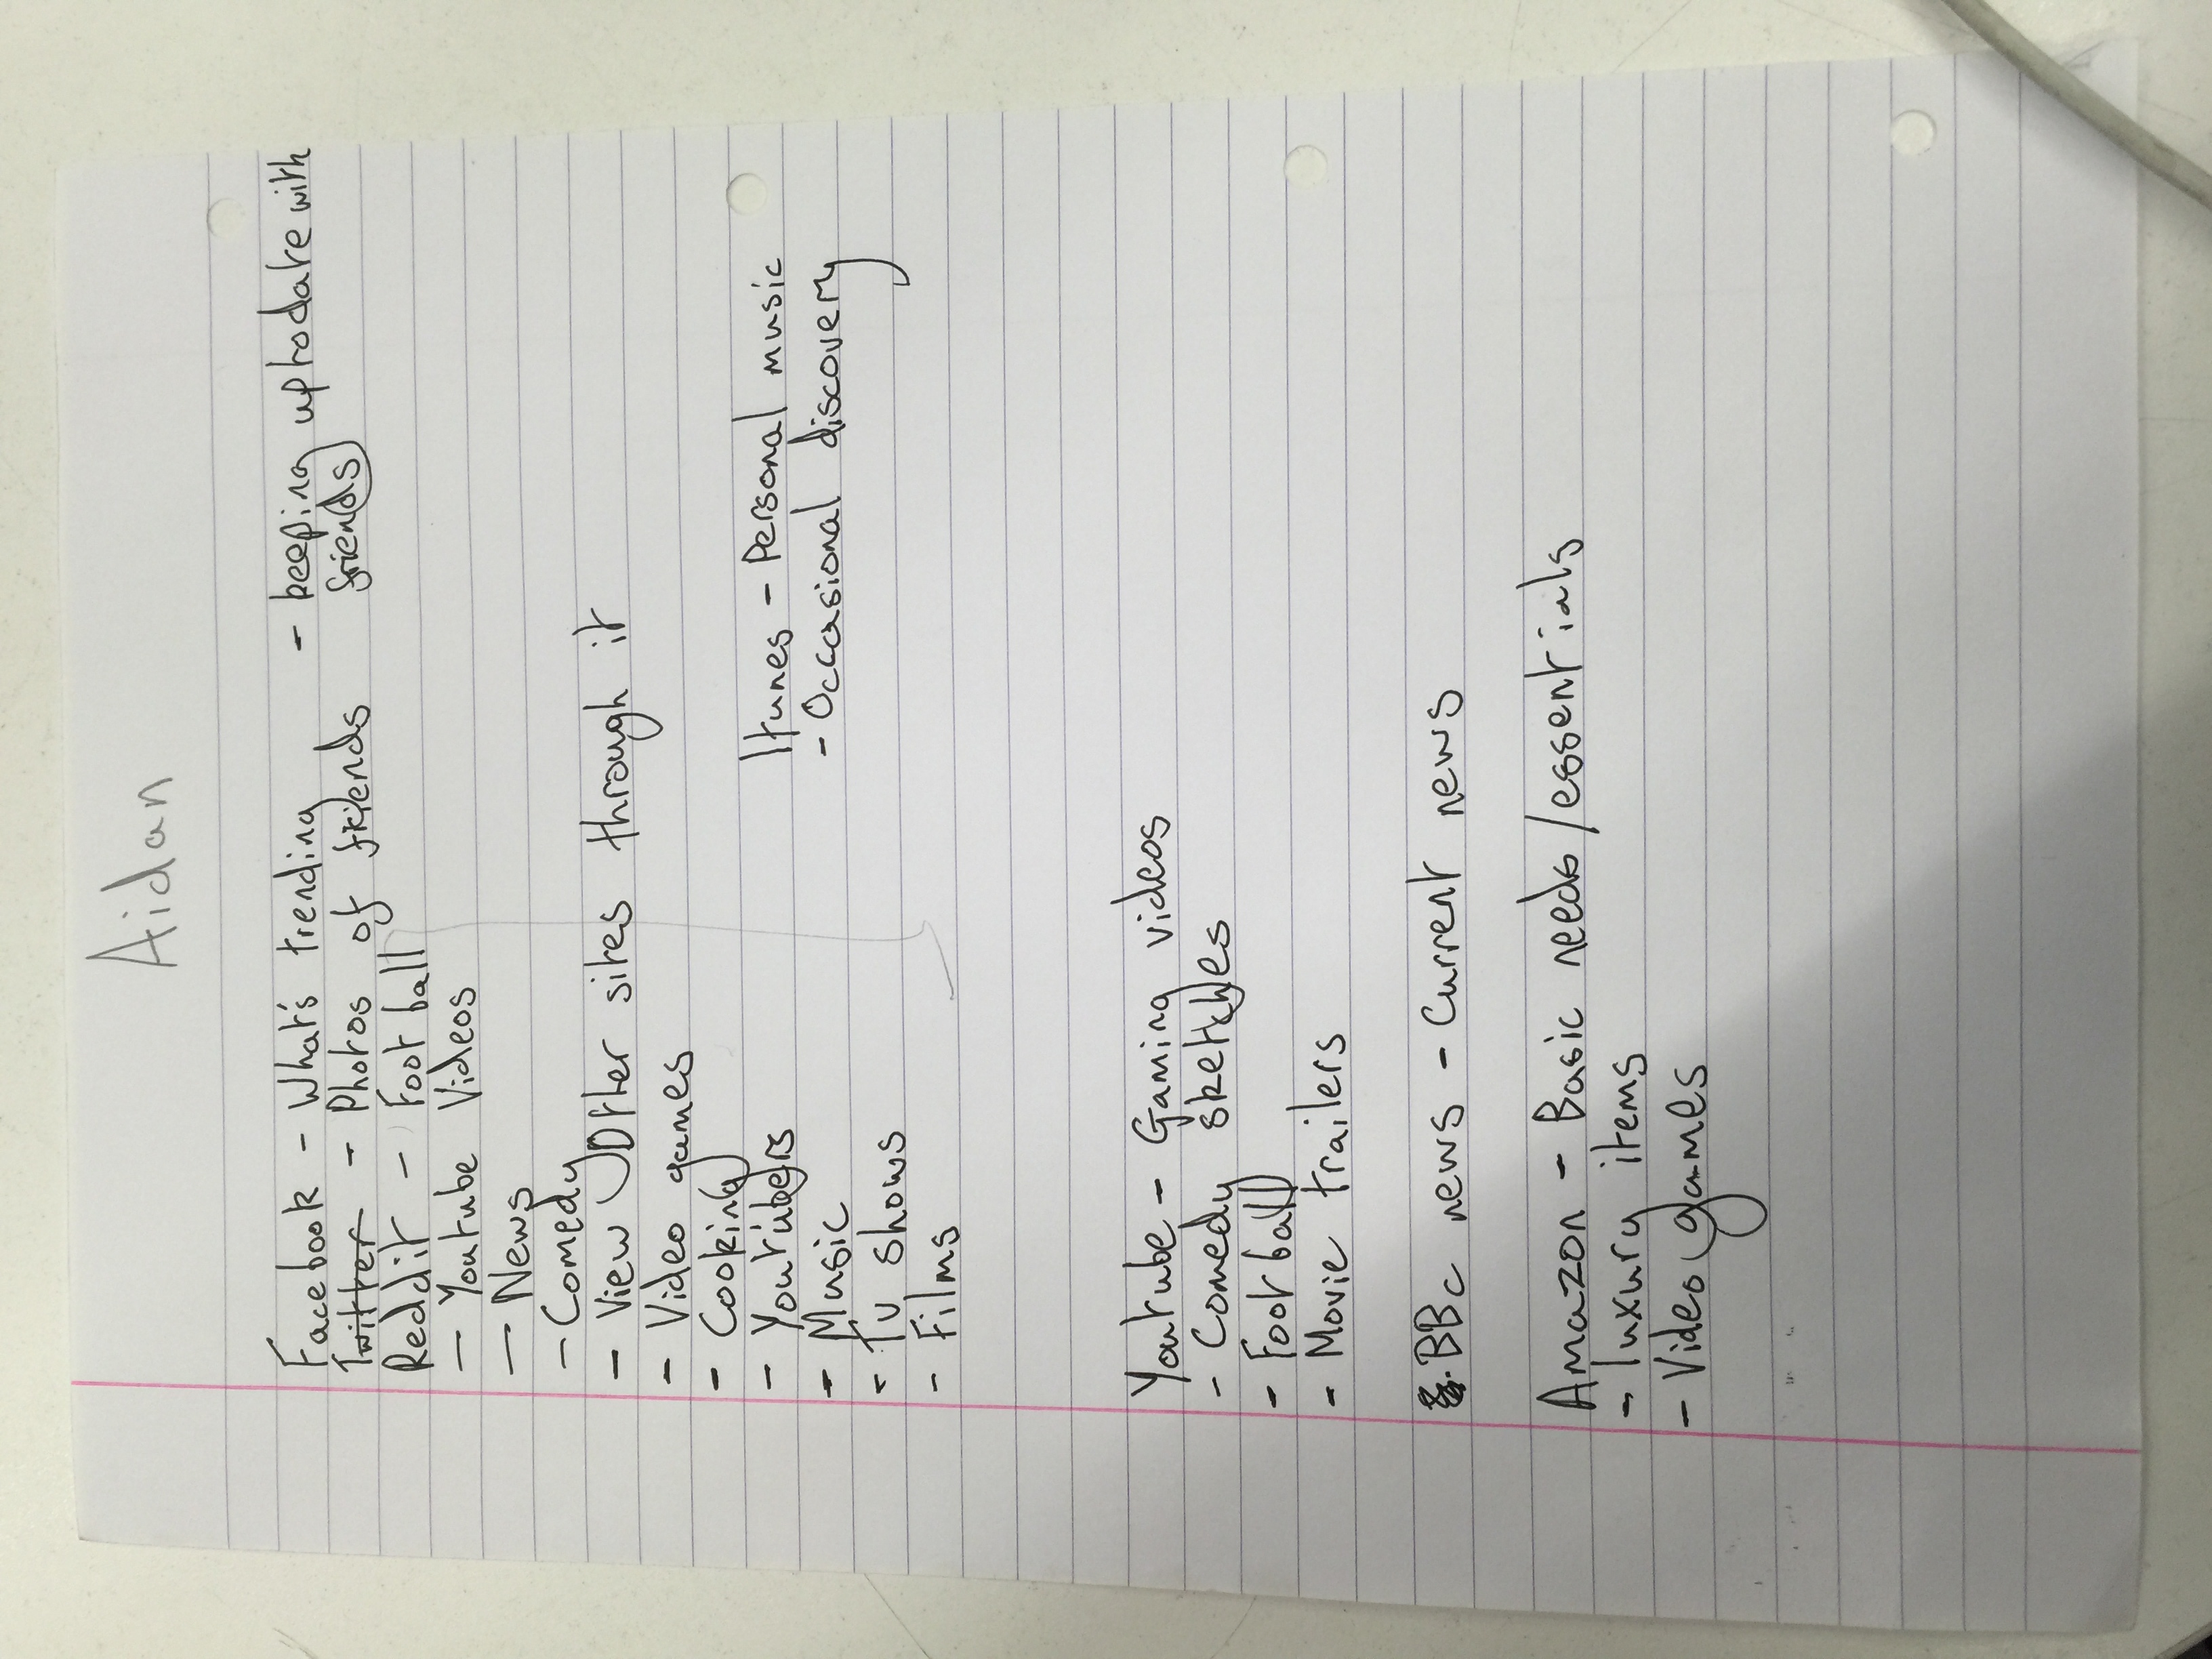 Aidan
Facebook - What's trending - keeping up to date with
Twitter - Photos of friends friends
Reddit - Football
- Youtube Videos
- News
- Comedy
- View Other sites through it
- Video games
- Cooking
- Youtubers
- Music
- Tv shows
- Films
Itunes - Personal music
- Occasional discovery
Youtube - Gaming videos
- Comedy sketches
- Football
- Movie trailers
BBc news - Current news
Amazon - Basic needs/essentials
- luxury items
- Video games